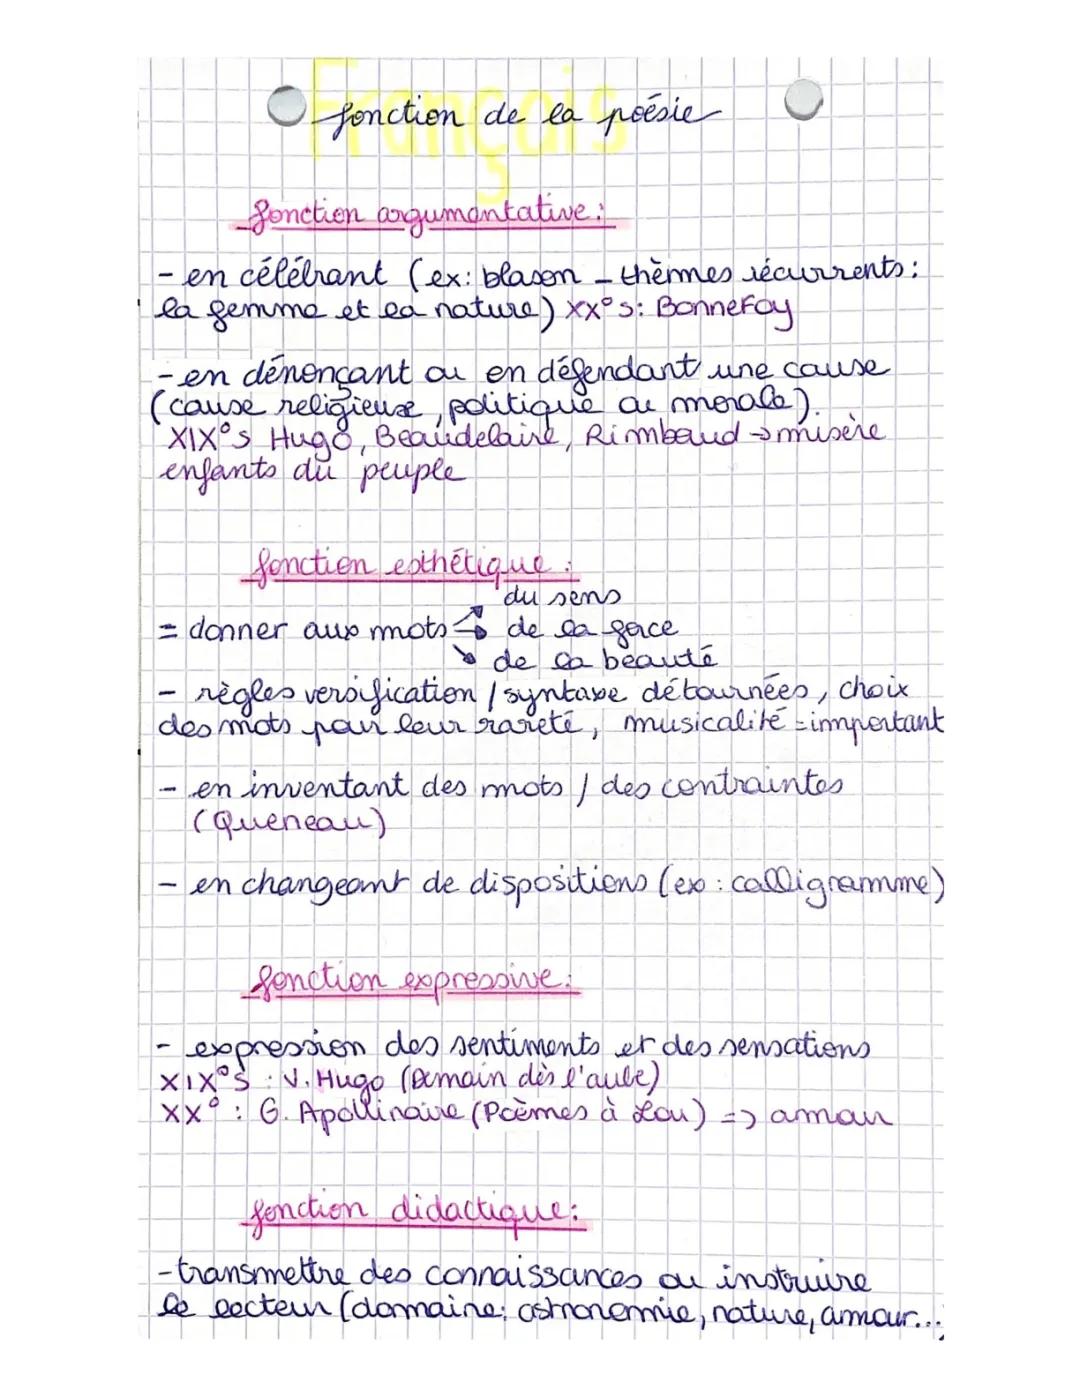 Français
fonction de la poésie
fonction argumentative:
- en célébrant (ex: blason - thèmmes récurrents:
la femme et la nature) XX°s: Bonnefoy
- en dénonçant ou en défendant une cause
(cause religieuse, politique ou morale).
XIX°s Hugo, Beaudelaire, Rimbaud → misère
enfants du peuple
fonction esthétique:
du sens
= donner aux mots → de la force
de la beauté
- règles versification / syntaxe détournées, choix
des mots pour leur rareté, musicalité = important
- en inventant des mots / des contraintes
(Queneau)
- en changeant de dispositions (ex: calligramme)
fonction expressive:
- expression des sentiments et des sensations
XIX°S: V. Hugo (Demain dès l'aube)
XX°: G. Apollinaire (Poèmes à Lou) => amour
fonction didactique:
- transmettre des connaissances ou instruire
le lecteur (domaine: astronomie, nature, amour...)